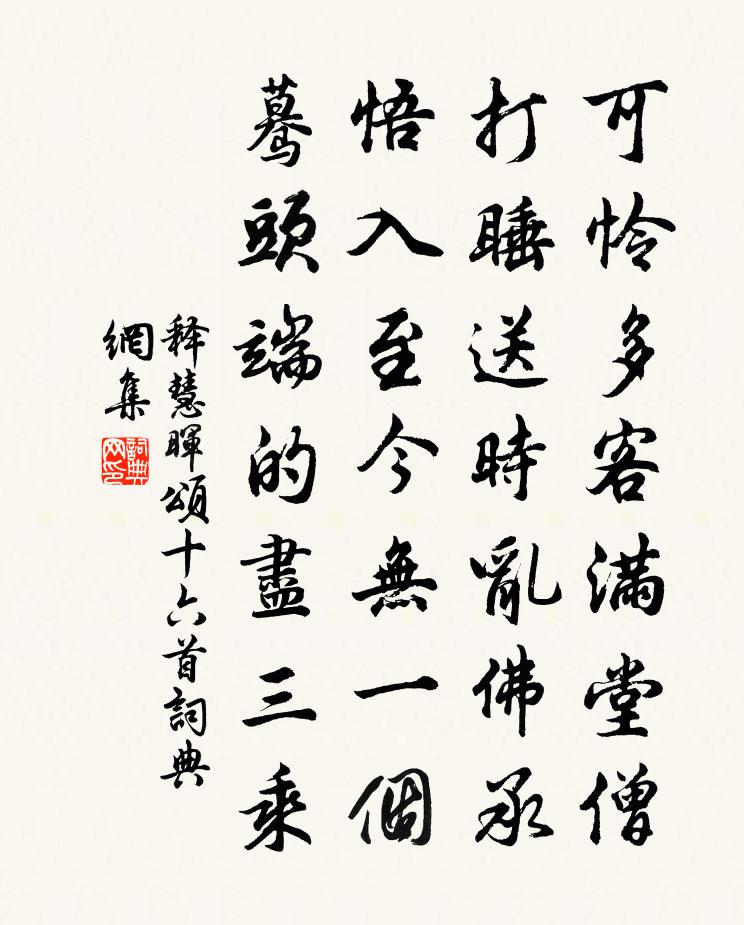 可怜多客满堂僧
打睡送時亂佛承
悟入至今無一個
驀頭端的盡三乘
释慧暉頌十六首詞典
網集
詞典網印